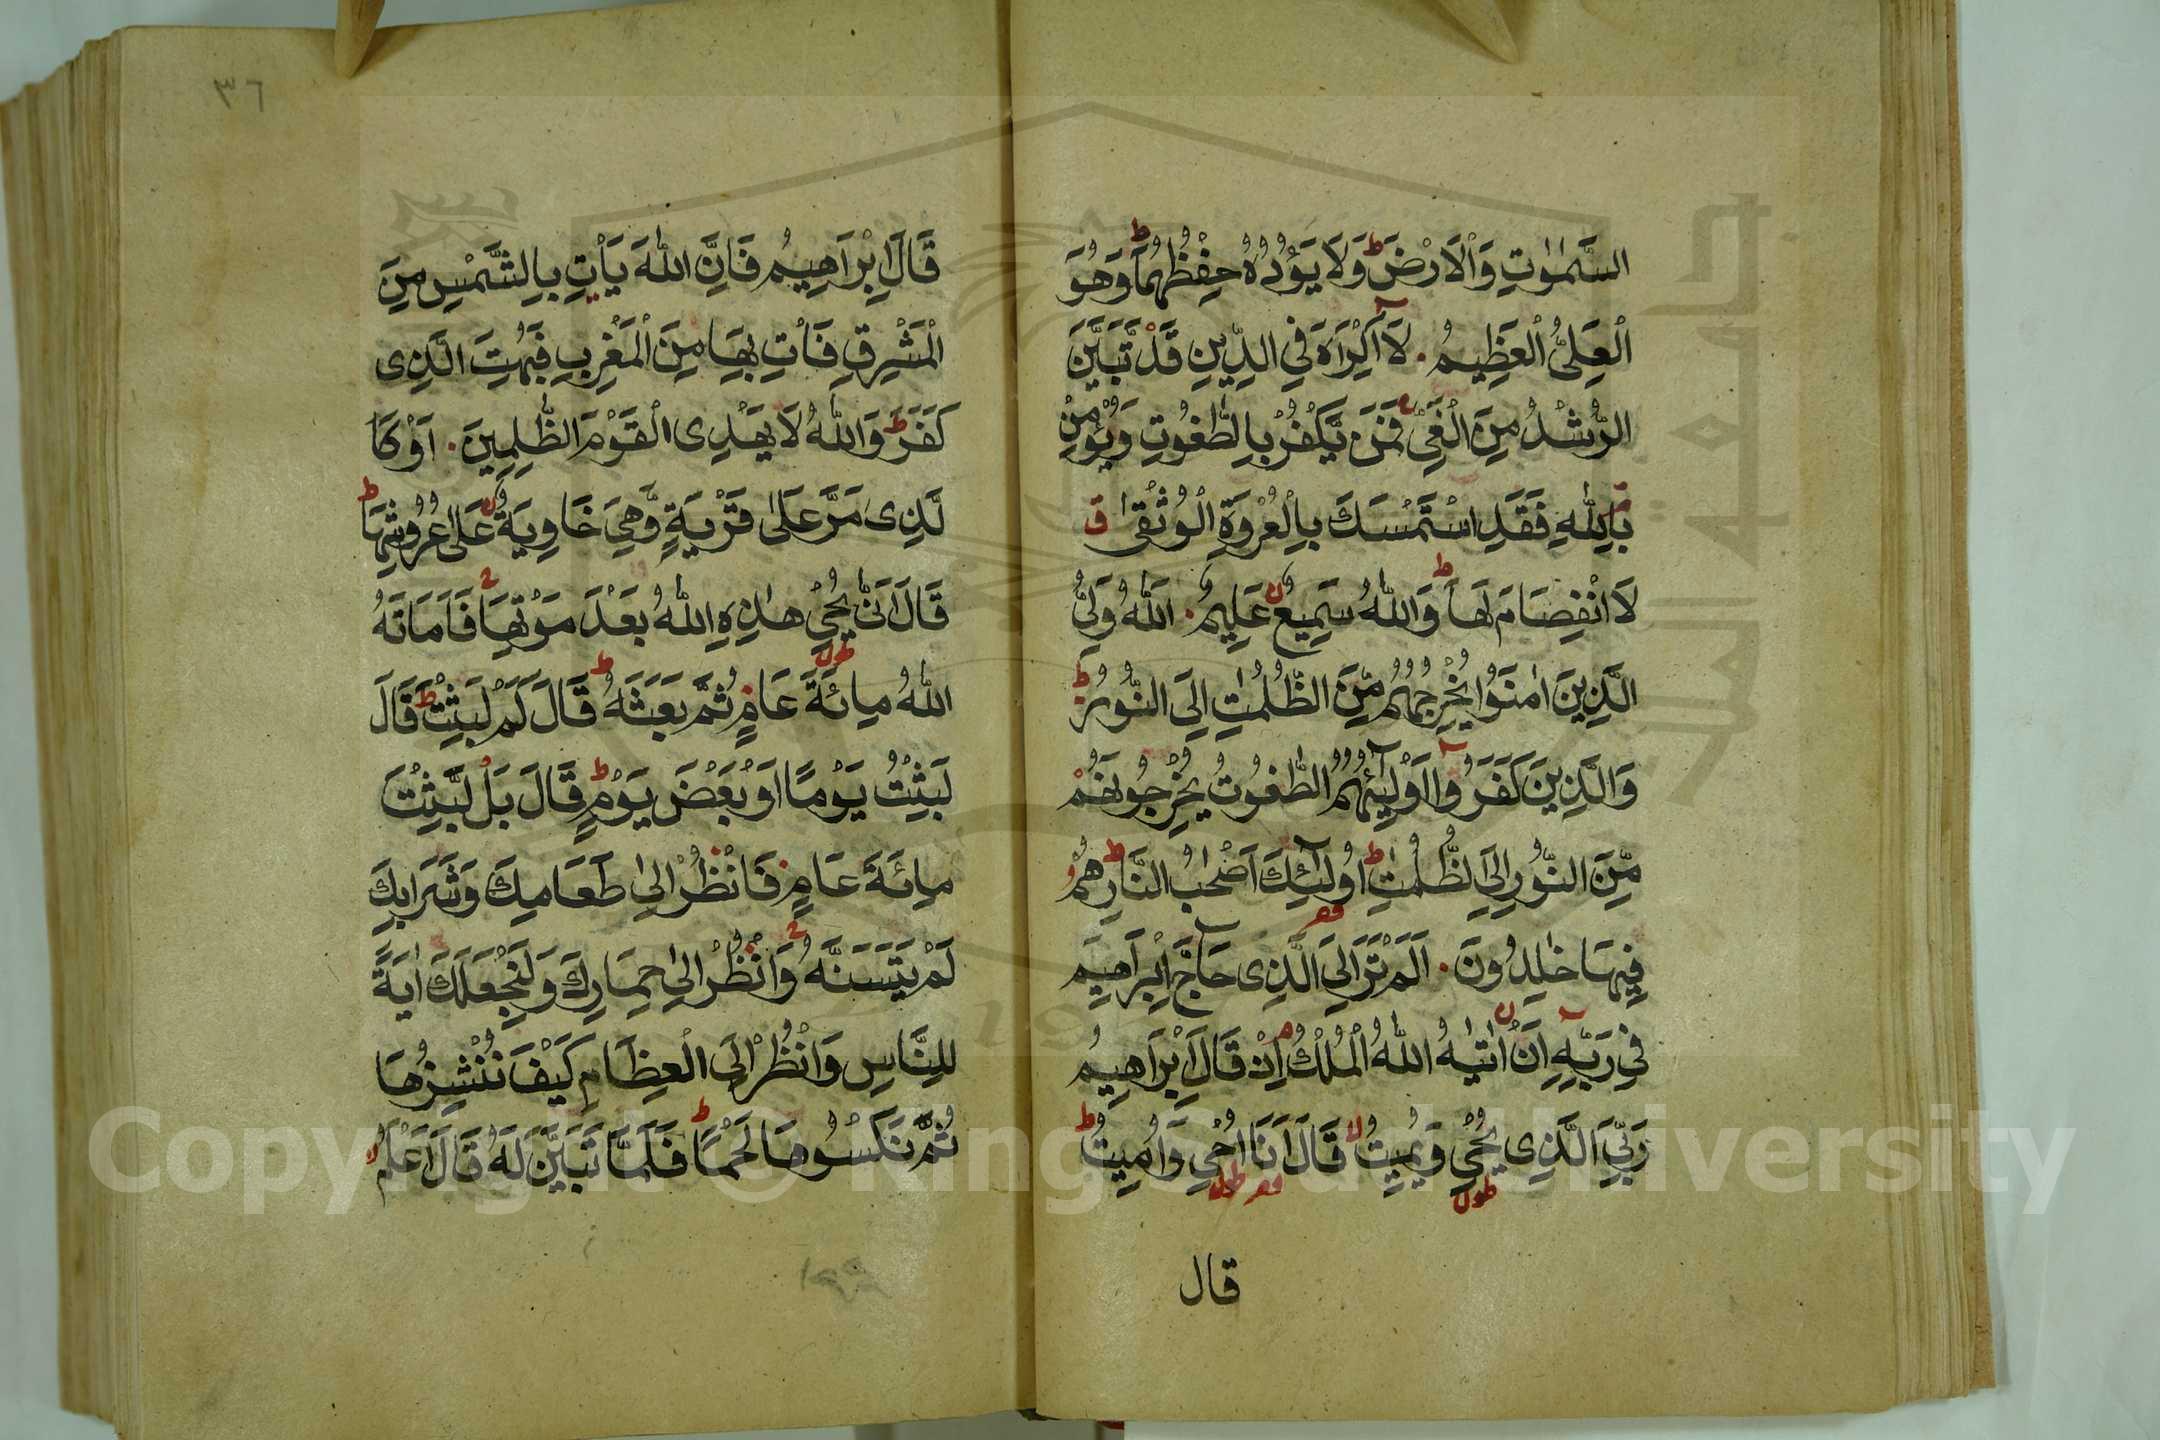 السَّمٰوٰتِ وَالْاَرْضَ ط وَلَا يَؤُدُهُ حِفْظُهُمَا ط وَهُوَ
الْعَلِىُّ الْعَظِيمُ . لَآ اِكْرَاهَ فِي الدِّينِ قَدْ تَّبَيَّنَ
الرُّشْدُ مِنَ الْغَيِّ فَمَنْ يَّكْفُرْ بِالطّٰغُوتِ وَيُؤْمِنْ
بِاللّٰهِ فَقَدِ اسْتَمْسَكَ بِالْعُرْوَةِ الْوُثْقٰى ق
لَا انْفِصَامَ لَهَا ط وَاللّٰهُ سَمِيعٌ عَلِيمٌ . اَللّٰهُ وَلِىُّ
الَّذِينَ اٰمَنُوا يُخْرِجُهُمْ مِّنَ الظُّلُمٰتِ اِلَى النُّورِ ط
وَالَّذِينَ كَفَرُوآ اَوْلِيَٓئُهُمُ الطّٰغُوتُ يُخْرِجُونَهُمْ
مِّنَ النُّورِ اِلَى لظُّلُمٰتِ ط اُولٰٓئِكَ اَصْحٰبُ النَّارِ ط هُمْ
فِيهَا خٰلِدُونَ . اَلَمْ تَرَ اِلَى الَّذِى حَآجَّ اِبْرَاهِيمَ
فِي رَبِّهِٓ اَنْ اٰتٰيهُ اللّٰهُ الْمُلْكَ م اِذْ قَالَ اِبْرَاهِيمُ
رَبِّيَ الَّذِى يُحْيِ وَيُمِيتُ لا قَالَ اَنَا اُحْيِ وَاُمِيتُ ط
قال
٣٦
قَالَ اِبْرَاهِيمُ فَاِنَّ اللّٰهَ يَأْتِ بِالشَّمْسِ مِنَ
الْمَشْرِقِ فَاْتِ بِهَا مِنَ الْمَغْرِبِ فَبُهِتَ الَّذِى
كَفَرَ ط وَاللّٰهُ لَا يَهْدِى الْقَوْمَ الظّٰلِمِينَ . اَوْ كَا
لَّذِى مَرَّ عَلٰى قَرْيَةٍ وَّهِيَ خَاوِيَةٌ عَلٰى عُرُوشِهَا ط
قَالَ اَنّٰى يُحْيِ هٰذِهِ اللّٰهُ بَعْدَ مَوْتِهَا ج فَاَمَاتَهُ
اللّٰهُ مِائَةَ عَامٍ ثُمَّ بَعَثَهُ ط قَالَ كَمْ لَبِثْتَ ط قَالَ
لَبِثْتُ يَوْمًا اَوْ بَعْضَ يَوْمٍ ط قَالَ بَلْ لَّبِثْتَ
مِائَةَ عَامٍ فَانْظُرْ اِلٰى طَعَامِكَ وَشَرَابِكَ
لَمْ يَتَسَنَّهْ ج وَانْظُرْ اِلٰى حِمَارِكَ وَلِنَجْعَلَكَ اٰيَةً
لِلنَّاسِ وَانْظُرْ اِلَى الْعِظَامِ كَيْفَ نُنْشِزُهَا
ثُمَّ نَكْسُوهَا لَحْمًا ط فَلَمَّا تَبَيَّنَ لَهُ قَالَ اَعْلَمُ
Copyright © King Saud University